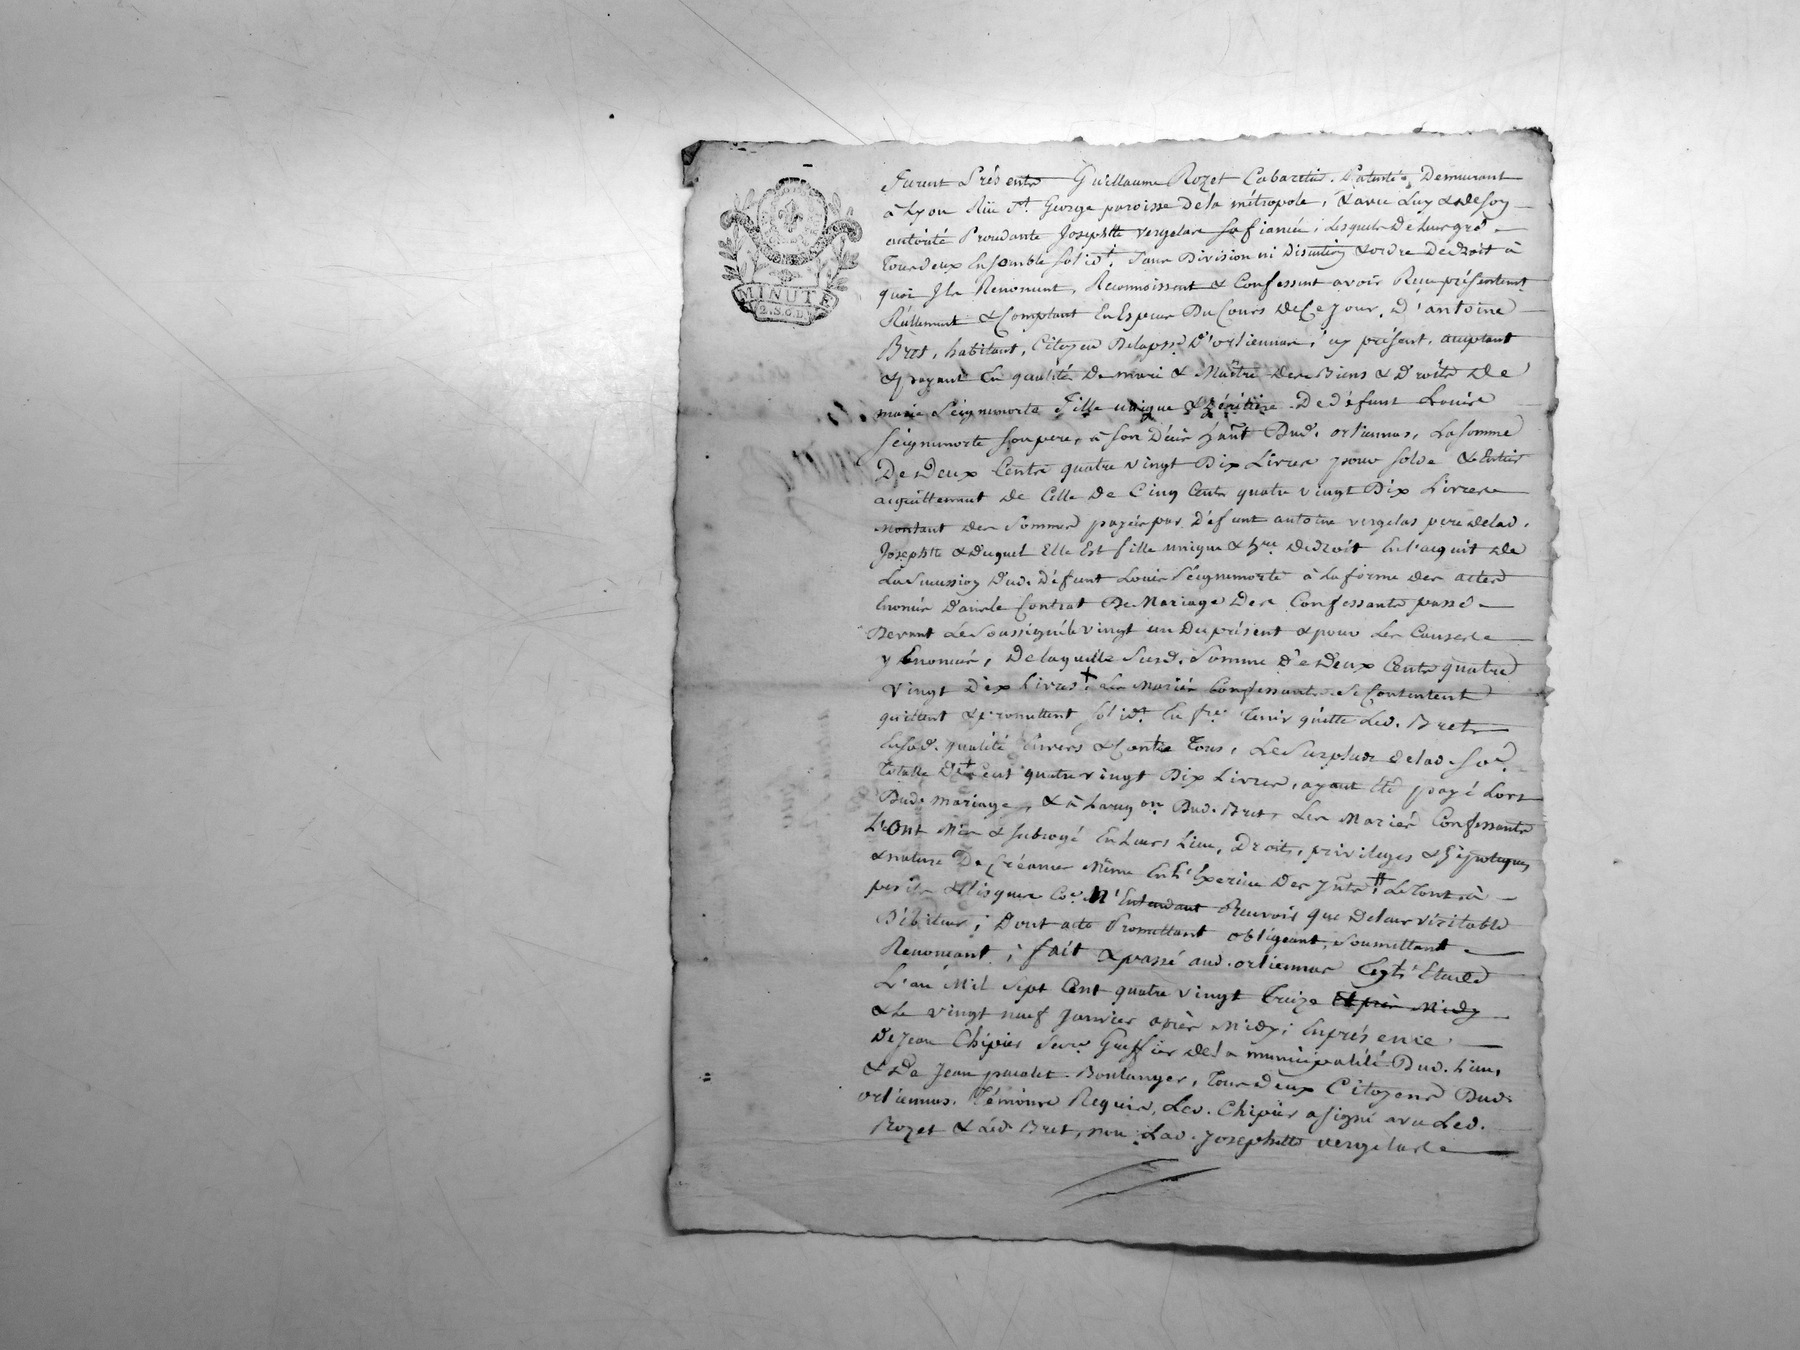 MINUTE
2. S. 6. D.
furent Présents Guillaume Rozet Cabaretier Patenté, Demeurant
à Lyon Rüe St. George paroisse de la métropole, & avec Luy & de son
autorité Procedante Josephtte vergelas sa fiancée, Lesquels De leur gré
tous deux Ensemble solidt. sans Division ni Discution & ordre De droit à
quoi Ils Renoncent, Reconnoissent & Confessent avoir Reçu présentemt.
Réellement & Comptant En Espèces Du Cours De Ce Jour, D'antoine
Bret, habitant, Citoyen De la psse. D'orliennas, icy présent, acceptant
& payant En qualité De mari & Maître Des Biens & Droits De
marie Seignemorte fille unique & héritière De Défunt Louis
Seignemorte son pere, à son Décès hant. Dud. orliennas, La somme
De Deux Cents quatre vingt Dix Livres pour solde & Entier
acquittement de Celle de Cinq Cents quatre vingt Dix Livres
montant des sommes payées par Défunt antoine vergelas pere de lad.
Josephtte & Duquel Elle Est fille unique & hre. De droit En l'acquit de
La Succession Dud. Défunt Louis Seignemorte à la forme des actes
Enoncés D'ans le Contrat De Mariage Des Confessants passé
Devant Le Soussigné le vingt un Du présent & pour Les Causes
y Enoncées, De laquelle susd. Somme De Deux Cents quatre
vingt Dix Livres Les Mariés Confessants se Contentent
quittent & promettent solidt. En fre. Tenir quitte Led. Bret
En sad. qualité Envers & Contre Tous, Le Surplus de lad. so.
Totalle De Cent quatre vingt Dix Livres, ayant été payé Lors
Dud. mariage, & à Dud. Bret, Les Mariés Confessants
L'Ont Mis & subrogé En Leurs Lieu, Droits, privileges & hipoteques
& nature De Créance Même En L'Exercice Des Le Tout à
perils & Risques Co. N'Entendant Recevoir que de leur véritable
Débiteur; Dont acte Promettant obligeant, soumettant
Renonçant; fait & passé aud. orliennas Etude
L'an Mil Sept Cent quatre vingt Treize après Midy
& Le vingt neuf Janvier après Midy; En présence
De Jean Chipier Secre. Greffier de la municipalité Dud. Lieu,
& De Jean Boulanger, Tous deux Citoyens Dud.
orliennas. Témoins Requis, Led. Chipier a signé avec Led.
Rozet & Led. Bret, non Lad. Josephtte vergelas